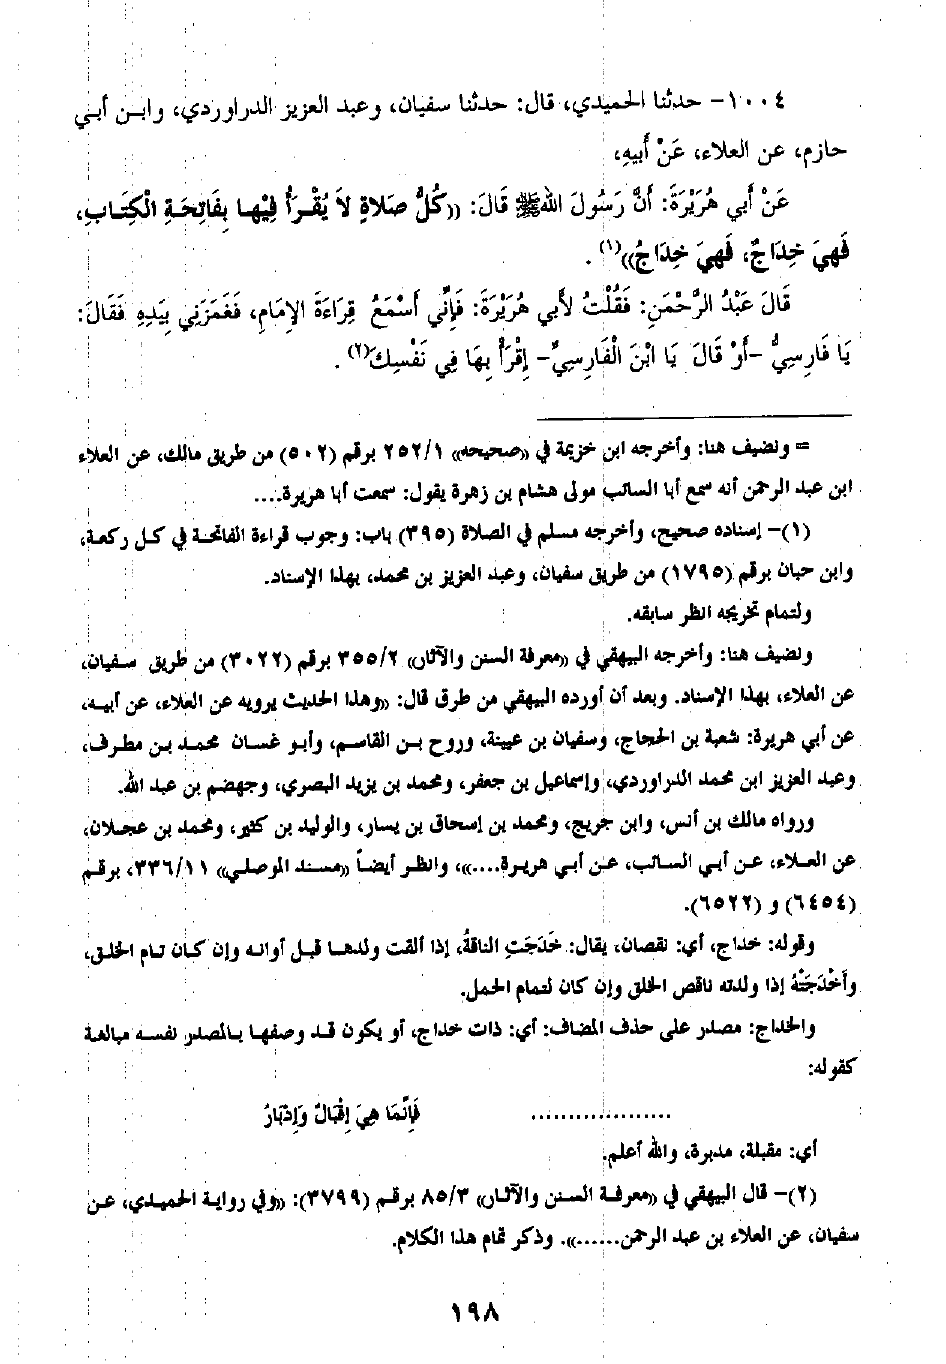 ١٠٠٤- حدثنا الحميدي، قال: حدثنا سفيان، وعبد العزيز الدراوردي، وابن أبي
حازم، عن العلاء، عَنْ أَبِيهِ،
عَنْ أَبي هُرَيْرَةَ: أَنَّ رَسُولَ اللهِ ﷺ قَالَ: ((كُلُّ صَلاةٍ لاَ يُقْرَأُ فِيْهَا بِفَاتِحَةِ الْكِتَابِ،
فَهِيَ خِدَاجٌ، فَهِيَ خِدَاجٌ))(١).
قَالَ عَبْدُ الرَّحْمَنِ: فَقُلْتُ لأَبي هُرَيْرَةَ: فَإِنِّي أَسْمَعُ قِرَاءَةَ الإِمَامِ، فَغَمَزَنِي بِيَدِهِ فَقَالَ:
يَا فَارِسِيُّ -أَوْ قَالَ يَا ابْنَ الْفَارِسِيِّ- إِقْرَأْ بِهَا فِي نَفْسِكَ(٢).
= ونضيف هنا: وأخرجه ابن خزيمة في ((صحيحه)) ٢٥٢/١ برقم (٥٠٢) من طريق مالك، عن العلاء
ابن عبد الرحمن أنه سمع أبا السائب مولى هشام بن زهرة يقول: سمعت أبا هريرة....
(١)- إسناده صحيح، وأخرجه مسلم في الصلاة (٣٩٥) باب: وجوب قراءة الفاتحة في كل ركعة،
وابن حبان برقم (١٧٩٥) من طريق سفيان، وعبد العزيز بن محمد، بهذا الإسناد.
ولتمام تخريجه انظر سابقه.
ونضيف هنا: وأخرجه البيهقي في ((معرفة السنن والآثار)) ٣٥٥/٢ برقم (٣٠٢٢) من طريق سفيان،
عن العلاء، بهذا الإسناد. وبعد أن أورده البيهقي من طرق قال: ((وهذا الحديث يرويه عن العلاء، عن أبيه،
عن أبي هريرة: شعبة بن الحجاج، وسفيان بن عيينة، وروح بن القاسم، وأبو غسان محمد بن مطرف،
وعبد العزيز ابن محمد الدراوردي، وإسماعيل بن جعفر، ومحمد بن يزيد البصري، وجهضم بن عبد الله.
ورواه مالك بن أنس، وابن جريج، ومحمد بن إسحاق بن يسار، والوليد بن كثير، ومحمد بن عجلان،
عن العلاء، عن أبي السائب، عن أبي هريرة....))، وانظر أيضاً ((مسند الموصلي)) ٣٣٦/١١، برقم
(٦٤٥٤) و (٦٥٢٢).
وقوله: خداج، أي: نقصان، يقال: خَدَجَتِ الناقةُ، إذا ألقت ولدها قبل أوانه وإن كان تام الخلق،
وأَخْدَجَتْهُ إذا ولدته ناقص الخلق وإن كان لتمام الحمل.
والخداج: مصدر على حذف المضاف: أي: ذات خداج، أو يكون قد وصفها بالمصدر نفسه مبالغة
كقوله:
................... فَإِنَّمَا هِيَ إِقْبَالٌ وَإِدْبَارُ
أي: مقبلة، مدبرة، والله أعلم.
(٢)- قال البيهقي في ((معرفة السنن والآثار)) ٨٥/٣ برقم (٣٧٩٩): ((وفي رواية الحميدي، عن
سفيان، عن العلاء بن عبد الرحمن......)). وذكر تمام هذا الكلام.
١٩٨